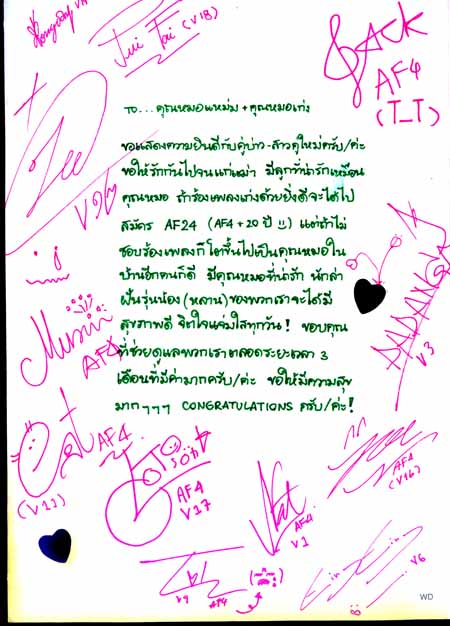 Jui Jui (V18)
Jack
AF4
(T_T)
TO...คุณหมอแหม่ม + คุณหมอเก่ง
ขอแสดงความยินดีกับคู่บ่าว-สาวคู่ใหม่ครับ/ค่ะ
ขอให้รักกันไปจนแก่เฒ่า มีลูกที่น่ารักเหมือน
คุณหมอ ถ้าร้องเพลงเก่งด้วยยิ่งดีจะได้ไป
สมัคร AF24 (AF4+20 ปี !!) แต่ถ้าไม่
ชอบร้องเพลงก็โตขึ้นไปเป็นคุณหมอใน
บ้านอีกคนก็ดี มีคุณหมอที่น่ารัก นักล่า
ฝันรุ่นน้อง (หลาน) ของพวกเราจะได้มี
สุขภาพดี จิตใจแจ่มใสทุกวัน! ขอบคุณ
ที่ช่วยดูแลพวกเราตลอดระยะเวลา 3
เดือนที่มีค่ามากครับ/ค่ะ ขอให้มีความสุข
มากๆๆๆ CONGRATULATIONS ครับ/ค่ะ!
V3
Music
AF4
AF4
(V11)
AF4
V17
Nat
AF4
V1
AF4
(V16)
V9
AF4
V6
WD